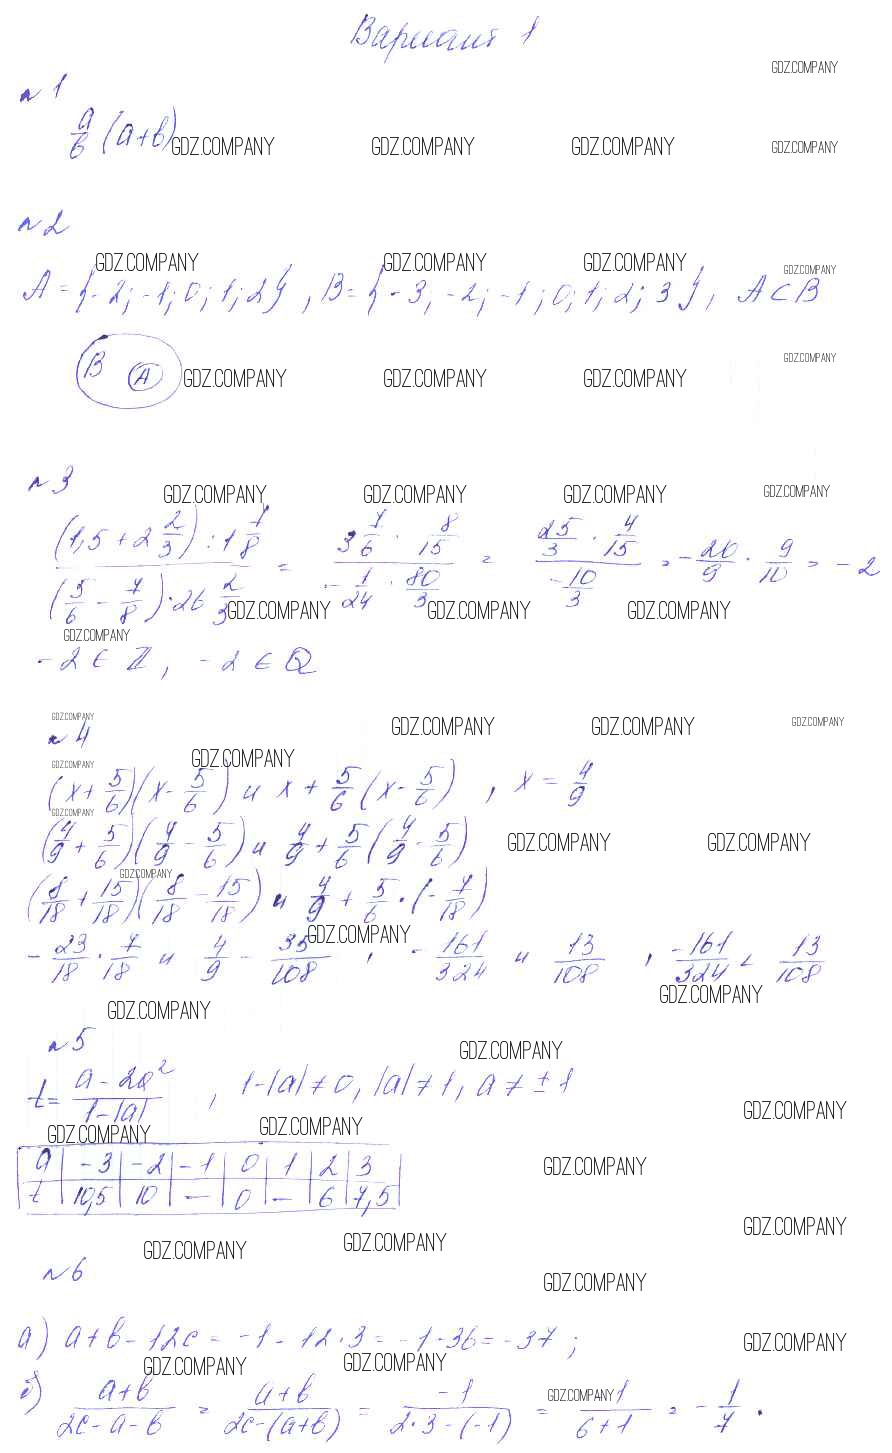 Вариант 1
GDZ.COMPANY
№1
a/b (a+b) GDZ.COMPANY GDZ.COMPANY GDZ.COMPANY GDZ.COMPANY
№2
GDZ.COMPANY GDZ.COMPANY GDZ.COMPANY GDZ.COMPANY
A = {-2; -1; 0; 1; 2}, B = {-3, -2; -1; 0; 1; 2; 3}, A ⊂ B
GDZ.COMPANY
B A GDZ.COMPANY GDZ.COMPANY GDZ.COMPANY
№3
GDZ.COMPANY GDZ.COMPANY GDZ.COMPANY GDZ.COMPANY
((1,5 + 2 2/3) : 1 7/8) / ((5/6 - 7/8) · 26 2/3) = (3 7/6 · 8/15) / (-1/24 · 80/3) = (25/3 · 4/15) / (-10/3) = -20/9 · 9/10 = -2
GDZ.COMPANY GDZ.COMPANY GDZ.COMPANY
GDZ.COMPANY
-2 ∈ Z, -2 ∈ Q
GDZ.COMPANY GDZ.COMPANY GDZ.COMPANY GDZ.COMPANY
№4
GDZ.COMPANY GDZ.COMPANY
(x + 5/6)(x - 5/6) и x + 5/6 (x - 5/6), x = 4/9
GDZ.COMPANY
(4/9 + 5/6)(4/9 - 5/6) и 4/9 + 5/6 (4/9 - 5/6) GDZ.COMPANY GDZ.COMPANY
GDZ.COMPANY
(8/18 + 15/18)(8/18 - 15/18) и 4/9 + 5/6 · (-7/18)
GDZ.COMPANY
-23/18 · 7/18 и 4/9 - 35/108, -161/324 и 13/108, -161/324 < 13/108
GDZ.COMPANY
GDZ.COMPANY
№5
GDZ.COMPANY
t = (a - 2a²)/(1-|a|), 1-|a| ≠ 0, |a| ≠ 1, a ≠ ±1
GDZ.COMPANY
GDZ.COMPANY GDZ.COMPANY
a -3 -2 -1 0 1 2 3
GDZ.COMPANY
t 10,5 10 — 0 — 6 7,5
GDZ.COMPANY
GDZ.COMPANY GDZ.COMPANY
№6
GDZ.COMPANY
а) a+b-12c = -1-12·3 = -1-36 = -37;
GDZ.COMPANY
GDZ.COMPANY GDZ.COMPANY
б) (a+b)/(2c-a-b) = (a+b)/(2c-(a+b)) = -1/(2·3-(-1)) = -1/(6+1) = -1/7.
GDZ.COMPANY